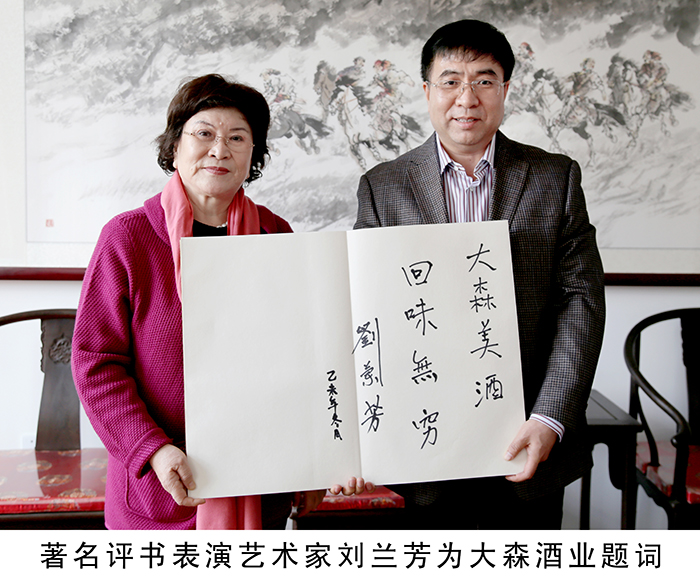 大森美酒
回味無穷
劉蘭芳
乙亥年冬月
著名评书表演艺术家刘兰芳为大森酒业题词